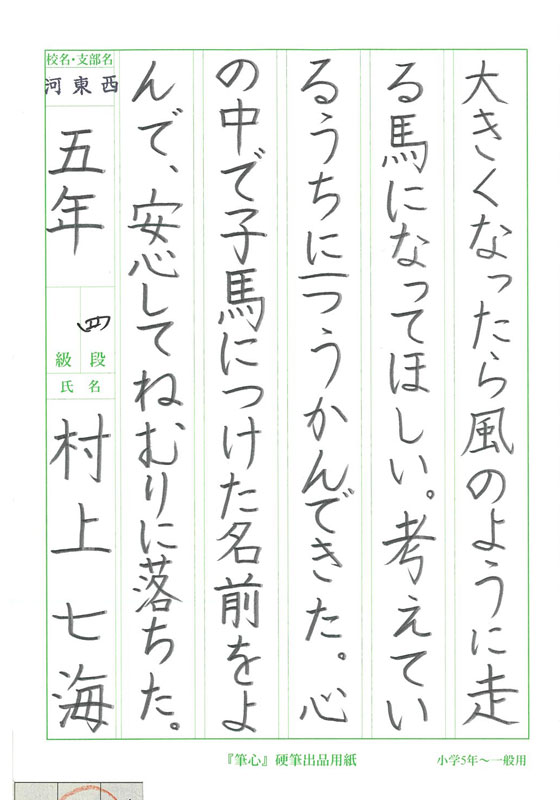 大きくなったら風のように走
る馬になってほしい。考えてい
るうちに一つうかんできた。心
の中で子馬につけた名前をよ
んで、安心してねむりに落ちた。
校名・支部名
河東西
五年
四
段
級
氏名
村上七海
『筆心』硬筆出品用紙
小学5年~一般用